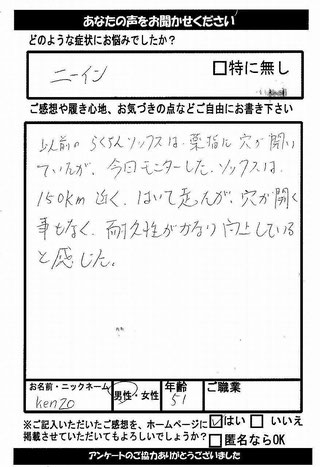 あなたの声をお聞かせください
どのような症状にお悩みでしたか?
ニーイン
□特に無し
ご感想や履き心地、お気づきの点などご自由にお書き下さい
以前の らくちんソックスは、薬指に穴が開い
ていたが、今回モニターした、ソックスは、
150km 近く、はいて走んが、穴が開く
事もなく、耐久性がかなり向上している
と感じた。
お名前・ニックネーム
kenzo
男性・女性
年齢
51
ご職業
※ご記入いただいたご感想を、ホームページに
☑はい □いいえ
掲載させていただいてもよろしいでしょうか?
□匿名ならOK
アンケートのご協力ありがとうございました